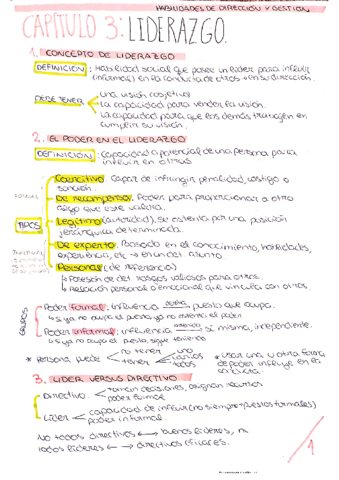 HABILIDADES DE DIRECCIÓN Y GESTIÓN
CAPÍTULO 3: LIDERAZGO.
1. CONCEPTO DE LIDERAZGO
DEFINICIÓN: Habilidad social que posee un líder para influir
(informal) en la conducta de otros → en su dirección.
DEBE TENER
una visión (objetivo)
La capacidad para vender la visión.
La capacidad para que los demás trabajen en
cumplir su visión.
2. EL PODER EN EL LIDERAZGO
DEFINICIÓN: capacidad o potencial de una persona para
influir en otros
TIPOS
Coercitivo: Capaz de infringir penalidad, castigo o
sanción.
De recompensa: Poder para proporcionar a otro
algo que este valora.
Legítimo (autoridad). Se ostenta por una posición
jerárquica determinada.
De experto: Basado en el conocimiento, habilidades,
experiencia, etc → en un det. asunto.
Personal (de referencia)
↳ Posesión de det. rasgos valiosos para otros.
↳ Relación personal o emocional que vincula con otros.
GRUPOS
Poder formal: influencia puesto que ocupa.
↳ si ya no ocupa el puesto ya no ostenta el poder
Poder informal: influencia sí misma, independiente.
↳ si ya no ocupa el puesto, sigue teniendo
* Persona puede
no tener
tener
uno
varios
todos
* Usar una u otra forma
de poder influye en la
conducta.
3. LÍDER VERSUS DIRECTIVO
Directivo:
toman decisiones, asignan recursos
poder formal
Líder
capacidad de influir (no siempre puestos formales)
poder informal.
No todos directivos ↔ buenos líderes, ni
todos líderes ↔ directivos eficaces.
1